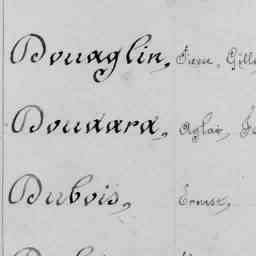 Douaglin, Pierre, Gill
Doudard, Aglaé, Je
Dubois, Ernest,